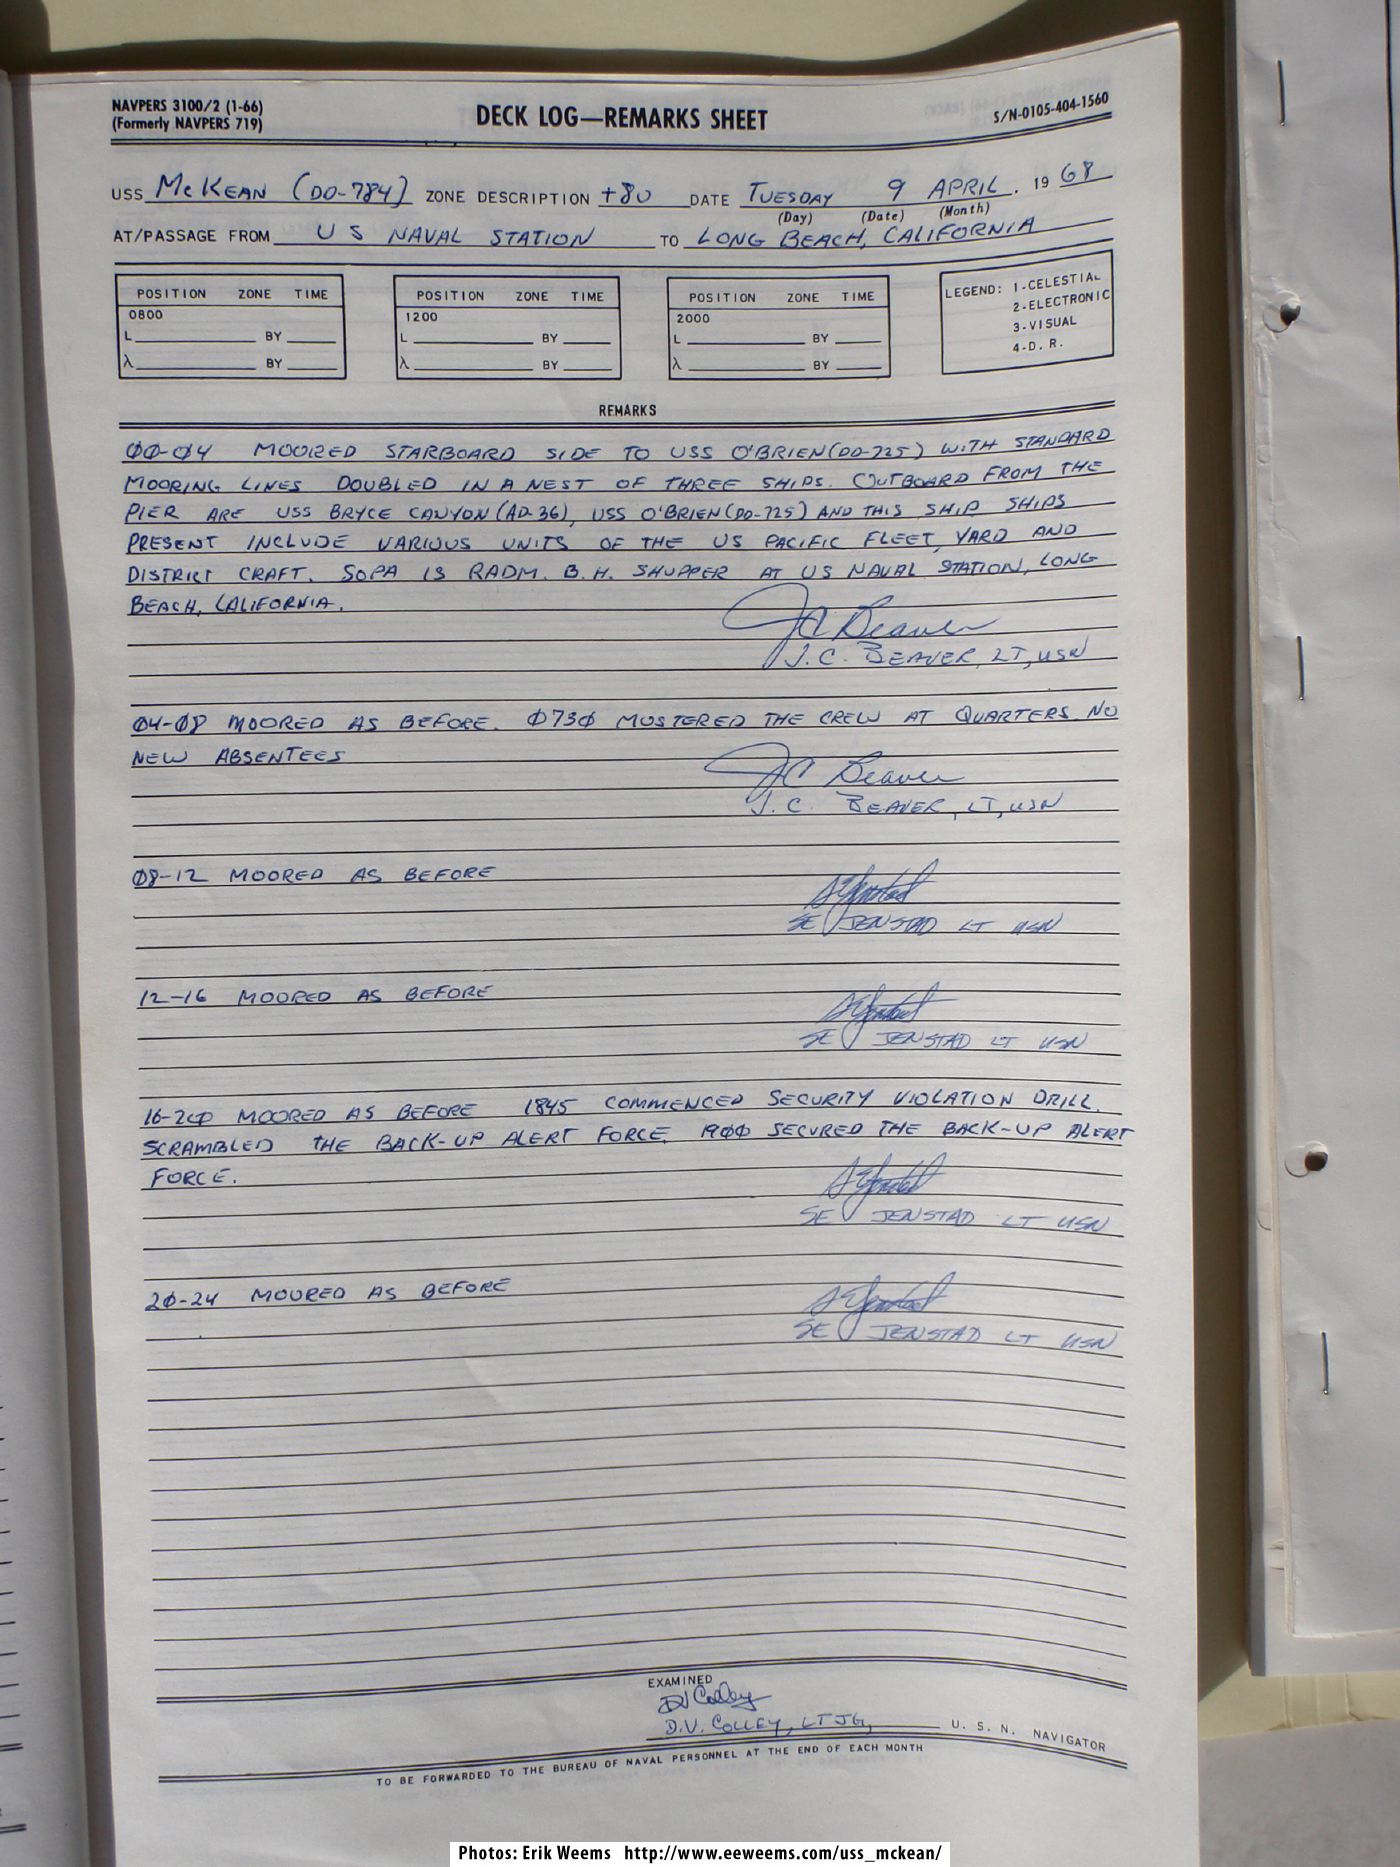 NAVPERS 3100/2 (1-66)
(Formerly NAVPERS 719)
DECK LOG—REMARKS SHEET
S/N-0105-404-1560
USS McKEAN (DD-784) ZONE DESCRIPTION +8U DATE TUESDAY 9 APRIL. 19 68
(Day) (Date) (Month)
AT/PASSAGE FROM U S NAVAL STATION TO LONG BEACH, CALIFORNIA
POSITION ZONE TIME
0800
L BY
λ BY
POSITION ZONE TIME
1200
L BY
λ BY
POSITION ZONE TIME
2000
L BY
λ BY
LEGEND: 1-CELESTIAL
2-ELECTRONIC
3-VISUAL
4-D. R.
REMARKS
00-04 MOORED STARBOARD SIDE TO USS O'BRIEN (DD-725) WITH STANDARD
MOORING LINES DOUBLED IN A NEST OF THREE SHIPS. OUTBOARD FROM THE
PIER ARE USS BRYCE CANYON (AD-36), USS O'BRIEN (DD-725) AND THIS SHIP SHIPS
PRESENT INCLUDE VARIOUS UNITS OF THE US PACIFIC FLEET, YARD AND
DISTRICT CRAFT. SOPA IS RADM. B.H. SHUPPER AT US NAVAL STATION, LONG
BEACH, CALIFORNIA.
JC Beaver
J.C. BEAVER, LT, USN
04-08 MOORED AS BEFORE. 0730 MUSTERED THE CREW AT QUARTERS NO
NEW ABSENTEES
JC Beaver
J.C. BEAVER, LT, USN
08-12 MOORED AS BEFORE
SE Jenstad
SE JENSTAD LT USN
12-16 MOORED AS BEFORE
SE Jenstad
SE JENSTAD LT USN
16-20 MOORED AS BEFORE 1845 COMMENCED SECURITY VIOLATION DRILL.
SCRAMBLED THE BACK-UP ALERT FORCE. 1900 SECURED THE BACK-UP ALERT
FORCE.
SE Jenstad
SE JENSTAD LT USN
20-24 MOORED AS BEFORE
SE Jenstad
SE JENSTAD LT USN
EXAMINED
DV Colley
D.V. COLLEY, LTJG, U. S. N. NAVIGATOR
TO BE FORWARDED TO THE BUREAU OF NAVAL PERSONNEL AT THE END OF EACH MONTH
Photos: Erik Weems http://www.eeweems.com/uss_mckean/